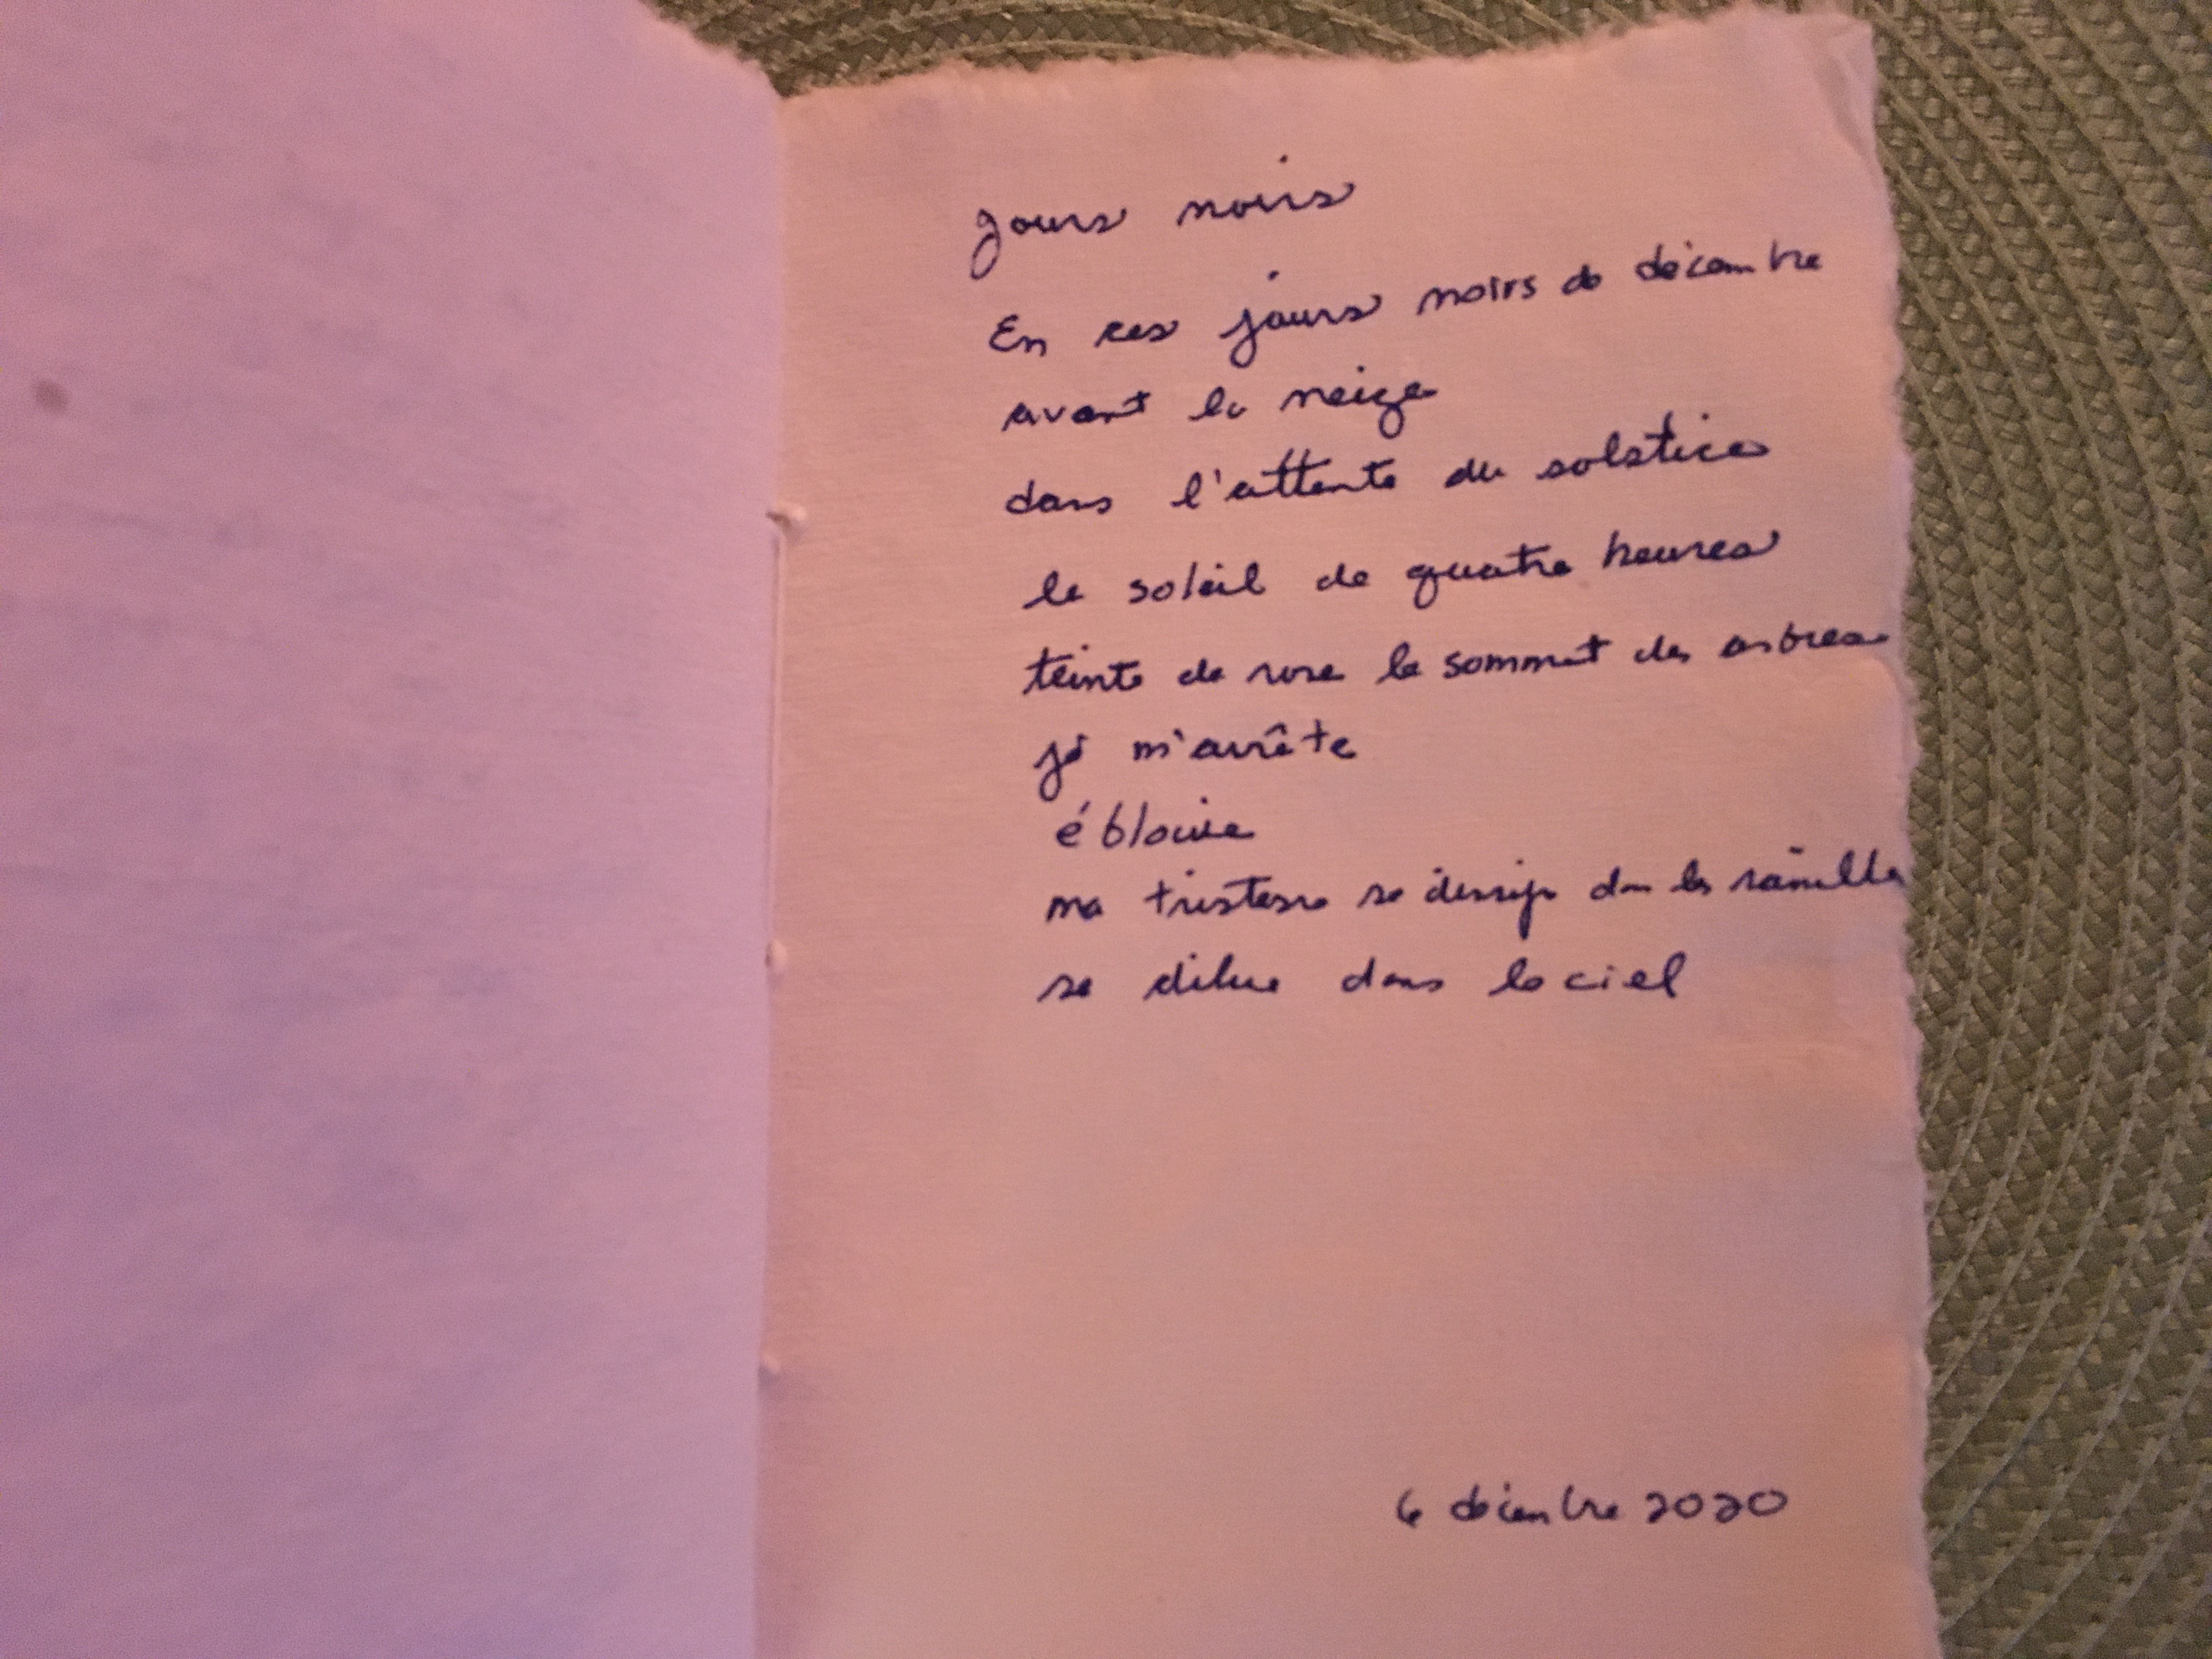 Jours noirs
En ces jours noirs de décembre
avant la neige
dans l'attente du solstice
le soleil de quatre heures
teinte de rose le sommet des arbres
je m'arrête
éblouie
ma tristesse se dissipe dans les ramilles
se dilue dans le ciel
6 décembre 2020